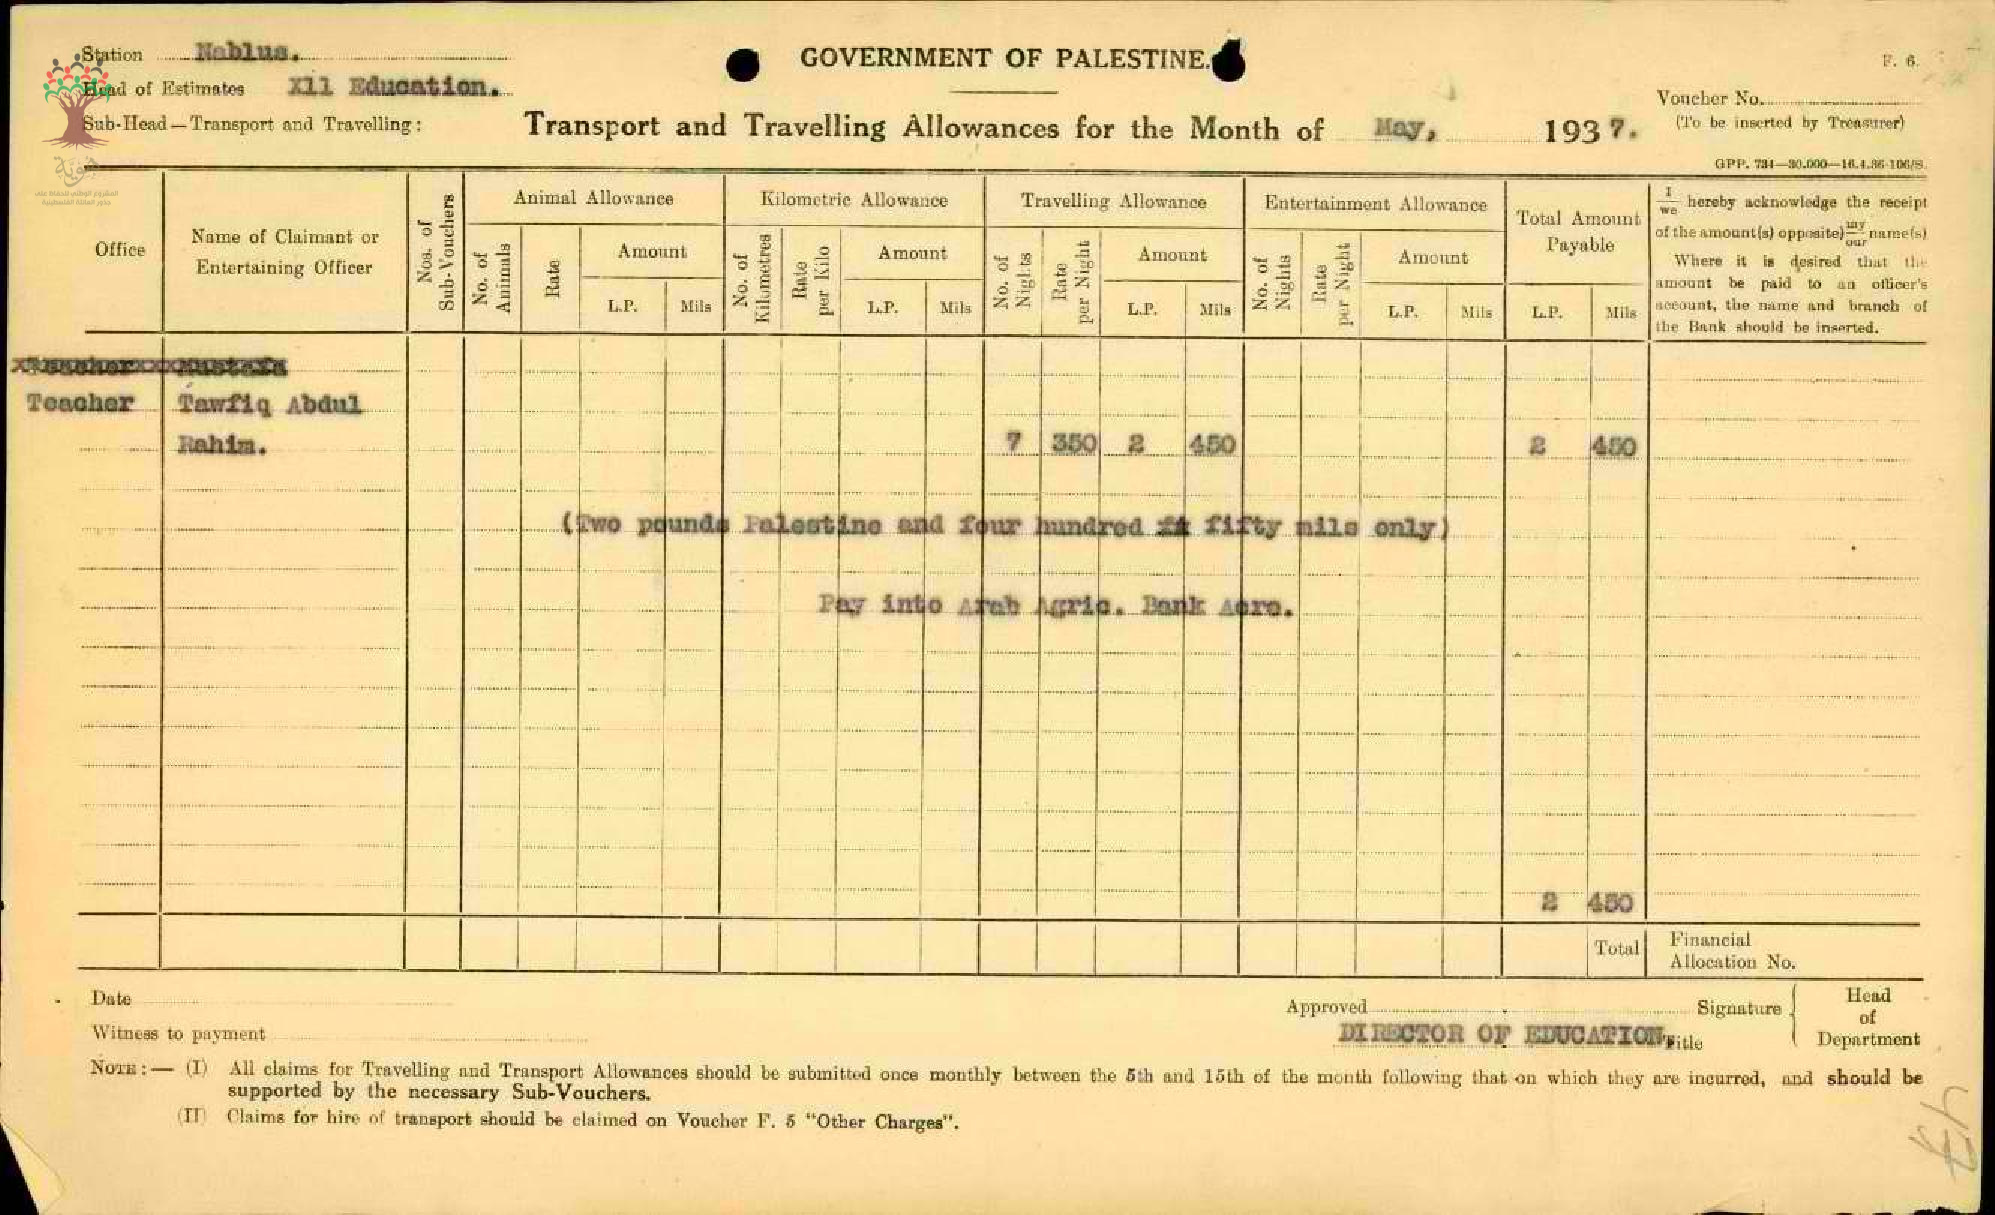 Station Nablus.
Head of Estimates X11 Education.
Sub-Head — Transport and Travelling:
هوية
المشروع الوطني للحفاظ على
جذور العائلة الفلسطينية
GOVERNMENT OF PALESTINE.
Transport and Travelling Allowances for the Month of May, 1937.
F. 6.
Voucher No.
(To be inserted by Treasurer)
GPP. 734—30.000—16.4.36-106/S.
Office
Name of Claimant or
Entertaining Officer
Nos. of
Sub-Vouchers
Animal Allowance
No. of
Animals
Rate
Amount
L.P. Mils
Kilometric Allowance
No. of
Kilometres
Rate
per Kilo
Amount
L.P. Mils
Travelling Allowance
No. of
Nights
Rate
per Night
Amount
L.P. Mils
Entertainment Allowance
No. of
Nights
Rate
per Night
Amount
L.P. Mils
Total Amount
Payable
L.P. Mils
I/we hereby acknowledge the receipt
of the amount(s) opposite) my/our name(s)
Where it is desired that the
amount be paid to an officer's
account, the name and branch of
the Bank should be inserted.
Teacher Mustafa
Teacher Tawfiq Abdul
Rahim. 7 350 2 450 2 450
(Two pounds Palestine and four hundred fifty mils only)
Pay into Arab Agric. Bank Acre.
2 450
Total
Financial
Allocation No.
Date
Witness to payment
Approved Signature
DIRECTOR OF EDUCATION, Title
Head
of
Department
NOTE:— (I) All claims for Travelling and Transport Allowances should be submitted once monthly between the 5th and 15th of the month following that on which they are incurred, and should be
supported by the necessary Sub-Vouchers.
(II) Claims for hire of transport should be claimed on Voucher F. 5 "Other Charges".